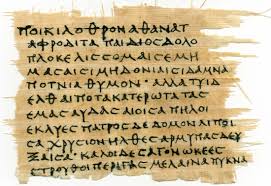 ΠΟΙΚΙΛΟΘΡΟΝΑΘΑΝΑΤ
ΑΦΡΟΔΙΤΑΠΑΙΔΙΟΣΔΟΛΟ
ΠΛΟΚΕΛΙΣΣΟΜΑΙΣΕΜΗ
ΜΑΣΑΙΣΙΜΗΔΟΝΙΑΙΣΙΔΑΜΝΑ
ΠΟΤΝΙΑΘΥΜΟΝ·ΑΛΛΑΤΥΙΔ
ΕΛΘΑΙΠΟΤΑΚΑΤΕΡΩΤΑΤΑΣ
ΕΜΑΣΑΥΔΑΣΑΙΟΙΣΑΠΗΛΟΙ
ΕΚΛΥΕΣΠΑΤΡΟΣΔΕΔΟΜΟΝΛΙΠΟΙ
ΣΑΧΡΥΣΙΟΝΗΛΘΕΣΑΡΜΥΠΑΣΔΕΥ
ΞΑΙΣΑ·ΚΑΛΟΙΔΕΣΑΓΟΝΩΚΕΕΣ
ΣΤΡΟΥΘΟΙΠΕΡΙΓΑΣΜΕΛΑΙΝΑΣΠΥΚΝΑ